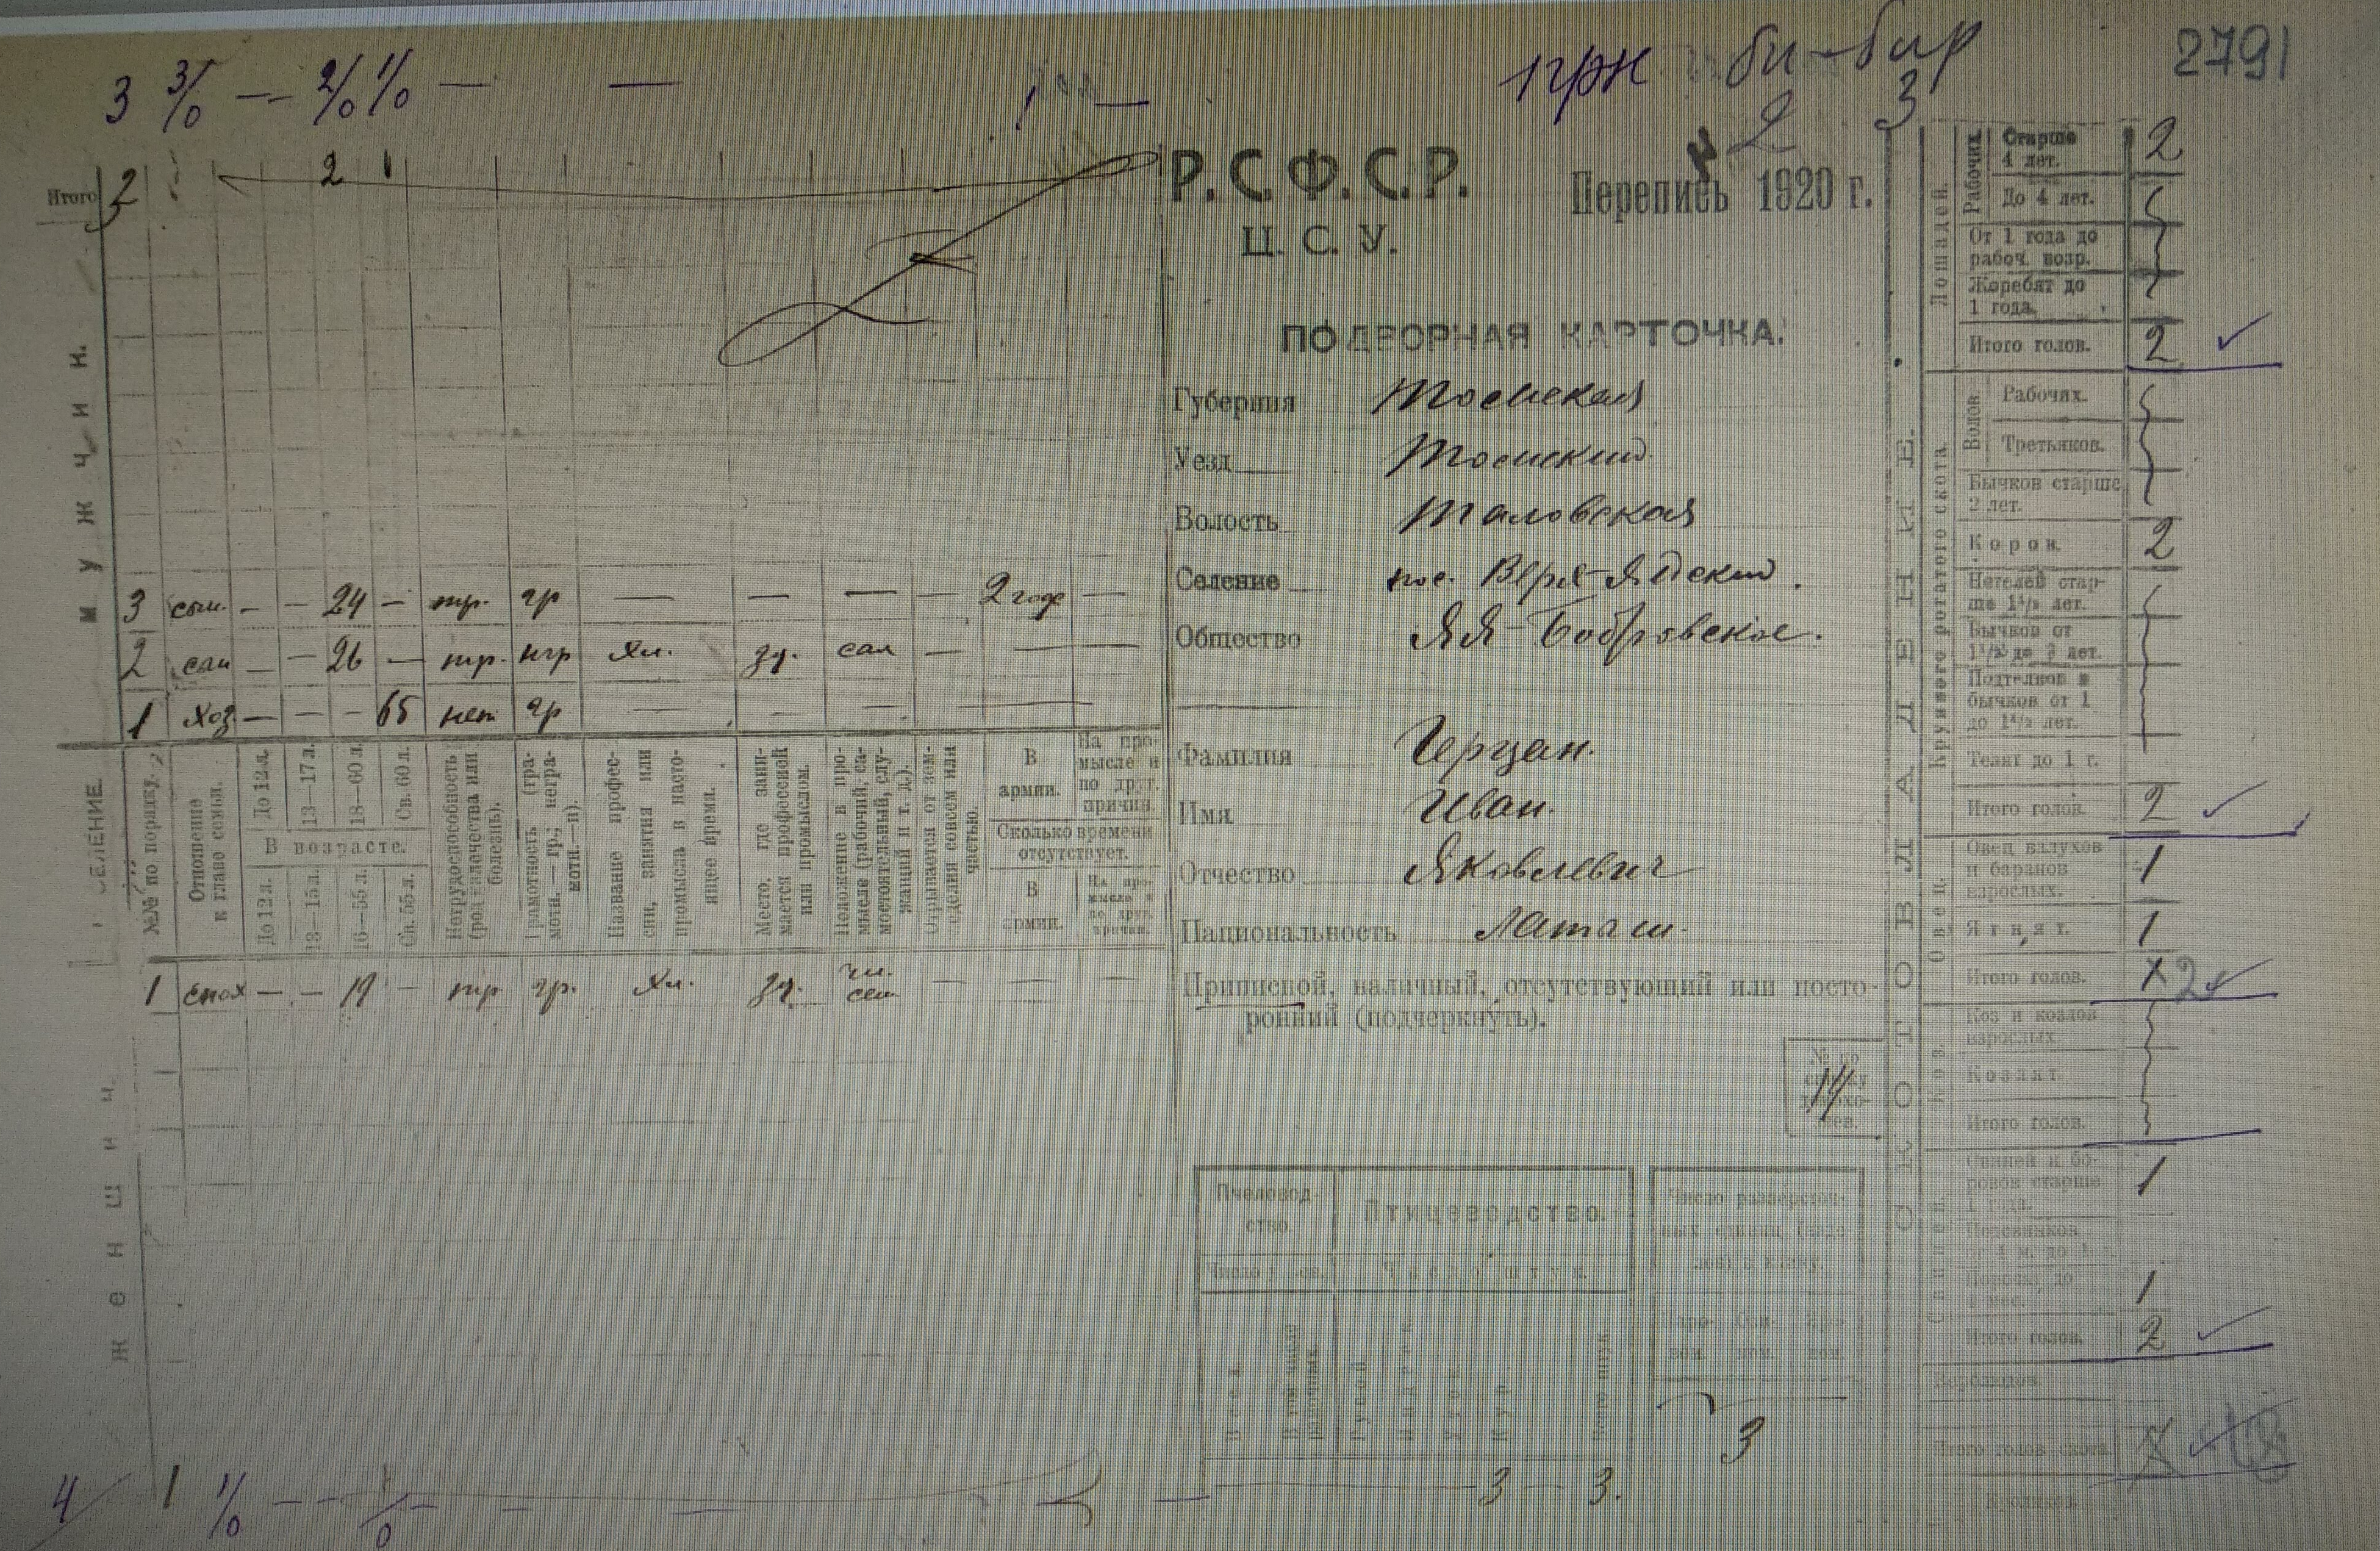 3 3/0 — 2/0 1/0 — —
1 грн
би-бир
2791
2 3
Итого 2 2 1
Р.С.Ф.С.Р.
Перепись 1920 г.
Ц.С.У.
ПОДВОРНАЯ КАРТОЧКА.
Губерния Томская
Уезд Томский
Волость Таловская
Селение пос. Верх-Яйский.
Общество Яя-Бобровское.
Фамилия Герцан.
Имя Иван.
Отчество Яковлевич
Национальность Латыш.
Приписной, наличный, отсутствующий или посто-
ронний (подчеркнуть).
№ по
списку
домохо-
зяев.
14
мужчин.
3 сын. — — 24 — тр. гр — — — — 2 год —
2 сын — — 26 — тр. нгр хл. зд. сам — — —
1 хоз — — — 65 нет гр — — — —
СЕЛЕНИЕ.
№№ по порядку.
Отношение к главе семьи.
До 12 л.
13—17 л.
18—60 л.
Св. 60 л.
В возрасте.
До 12 л.
13—15 л.
16—55 л.
Св. 55 л.
Нетрудоспособность (род увечества или болезнь).
Грамотность (гра-
мотн. — гр.; негра-
мотн.—н).
Название профес-
сии, занятия или
промысла в насто-
ящее время.
Место, где зани-
мается профессией
или промыслом.
Положение в про-
мысле (рабочий, са-
мостоятельный, слу-
жащий и т. д.).
Отрывается от зем-
леделия совсем или
частью.
В армии.
На про-
мысле и
по друг.
причин.
Сколько времени
отсутствует.
В армии.
На про-
мысле и
по друг.
причин.
1 снох — — 19 — тр гр. хл. зд. — — —
женщин
4 1 1/0 — — 1/0 — — —
Пчеловод-
ство.
Птицеводство.
Число штук.
Всего
В том числе
рамочных.
Гусей
Индеек.
Уток
Кур.
Всего штук
3 — 3.
Число разверсточ-
ных единиц (наде-
лов)
3
СКОТОВЛАДЕНИЕ.
Лошадей.
Рабочих.
Старше
4 лет. 2
До 4 лет.
От 1 года до
рабоч. возр.
Жеребят до
1 года.
Итого голов. 2
Крупного рогатого скота.
Волов.
Рабочих.
Третьяков.
Бычков старше
2 лет.
Коров. 2
Нетелей стар-
ше 1½ лет.
Бычков от
1½ до 2 лет.
Подтелков и
бычков от 1
до 1½ лет.
Телят до 1 г.
Итого голов. 2
Овец.
Овец валухов
и баранов
взрослых. 1
Ягнят. 1
Итого голов. 2
Коз.
Коз и козлов
взрослых.
Козлят.
Итого голов.
Свиней.
Свиней и бо-
ровов старше
1 года. 1
Подсвинков
от 4 м. до 1 г.
Поросят до
4 мес. 1
Итого голов. 2
Верблюдов.
Итого голов скота.
Кроликов.